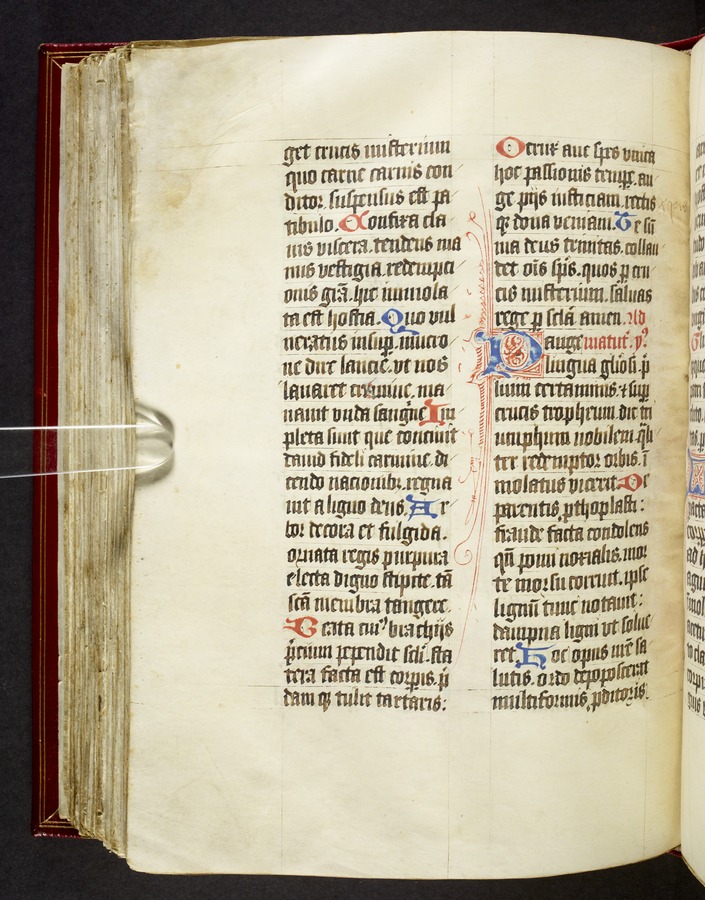 get crucis misterium
quo carne carnis con
ditor. suspensus est pa
tibulo. Confixa cla
uis viscera. tendens ma
nus vestigia. redempci
onis grã. hic immola
ta est hostia. Quo vul
neratus insup. mucro
ne dire lancee. vt nos
lauaret crimine. ma
nauit vnda sanguĩe Im
pleta sunt que concinit
dauid fideli carmine. di
cendo nacionibꝫ. regna
uit a ligno deus. Ar
bor decora et fulgida.
ornata regis purpura
electa digno stipite. tã
scã membra tangere.
Beata cuiꝰ brachijs
p̃cium pependit scĺi. sta
tera facta est corpis. p̃
dam qꝫ tulit tartaris:
O crux aue spes vnica
hoc passionis tempꝛe. au
ge pijs iusticiam. reĩs
qꝫ dona veniam. Te sũ
ma deus trinitas. collau
det oĩs sp̃s. quos p̱ cru
cis misterium. saluas
rege p̱ scĺa. amen. Ad
Pange matuť. yꝰ.
lingua gĺiosi. p̃
lium certaminis. ⁊ sup̱
crucis tropheum. dic tri
umphum nobilem. qľi
ter redemptor orbis. ĩ
molatus vicerit. De
parentis. ꝓthoplasti:
fraude facta condolens
qñ pomi noxialis. mor
te morsu corruit. ipse
lignũ tunc notauit:
dampna ligni vt solue
ret. Hoc opus nrẽ sa
lutis. ordo depoposcerat
multiformis. ꝓditoris.